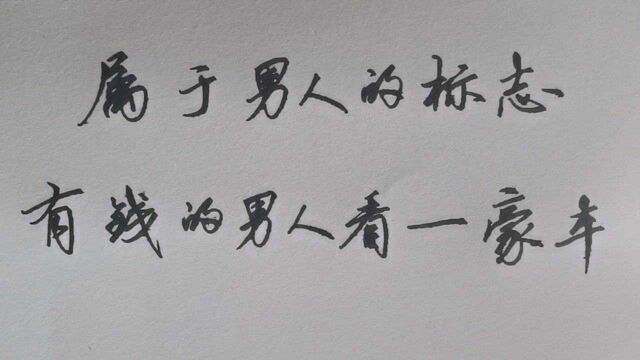 属于男人的标志
有钱的男人看一豪车